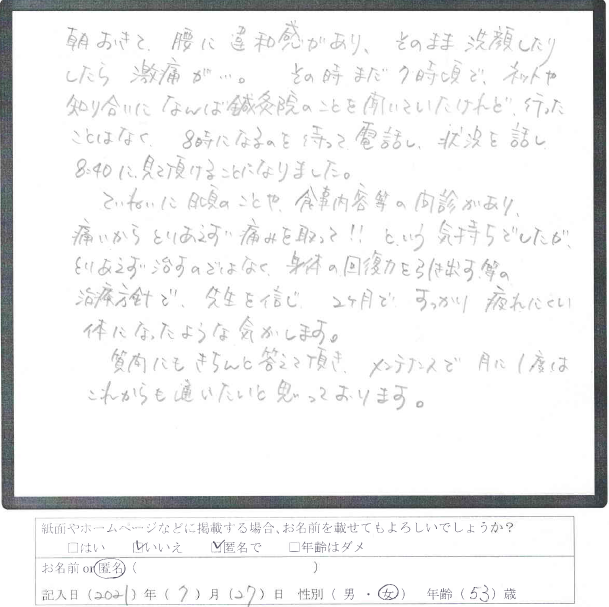 朝おきて、腰に違和感があり、そのまま洗顔したり
したら激痛が…。その時まだ7時頃で、ネットや
知り合いになんば鍼灸院のことを聞いていたけれど、行った
ことはなく、8時になるのを待って電話し、状況を話し
8:40に見て頂けることになりました。
ていねいに日頃のことや、食事内容等の問診があり、
痛いからとりあえず痛みを取って!!という気持ちでしたが、
とりあえず治すのではなく、身体の回復力を引き出す等の
治療方針で、先生を信じ、2ヶ月ですっかり疲れにくい
体になったような気がします。
質問にもきちんと答えて頂き、メンテナンスで月に1度は
これからも通いたいと思っております。
紙面やホームページなどに掲載する場合、お名前を載せてもよろしいでしょうか?
□はい ☑いいえ ☑匿名で □年齢はダメ
お名前or匿名( )
記入日(2021)年(7)月(27)日 性別(男・女) 年齢(53)歳